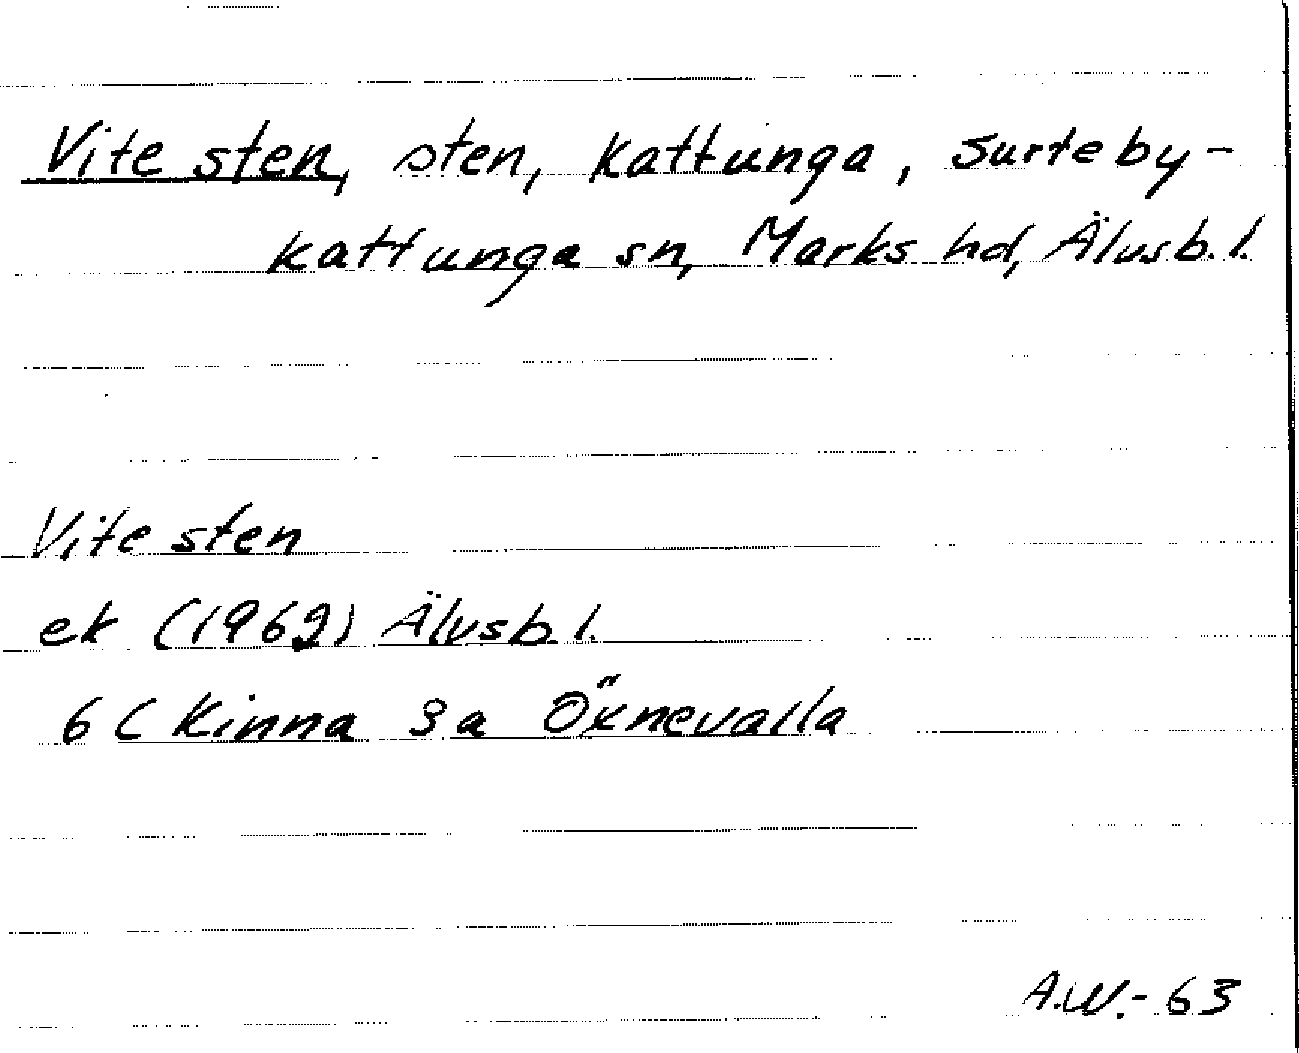 Vite sten, sten, Kattunga, Surteby-
kattunga sn, Marks hd, Älvsb. l.
Vite sten
ek (1962) Älvsb. l.
6C Kinna 3a Öxnevalla
A.W.-63